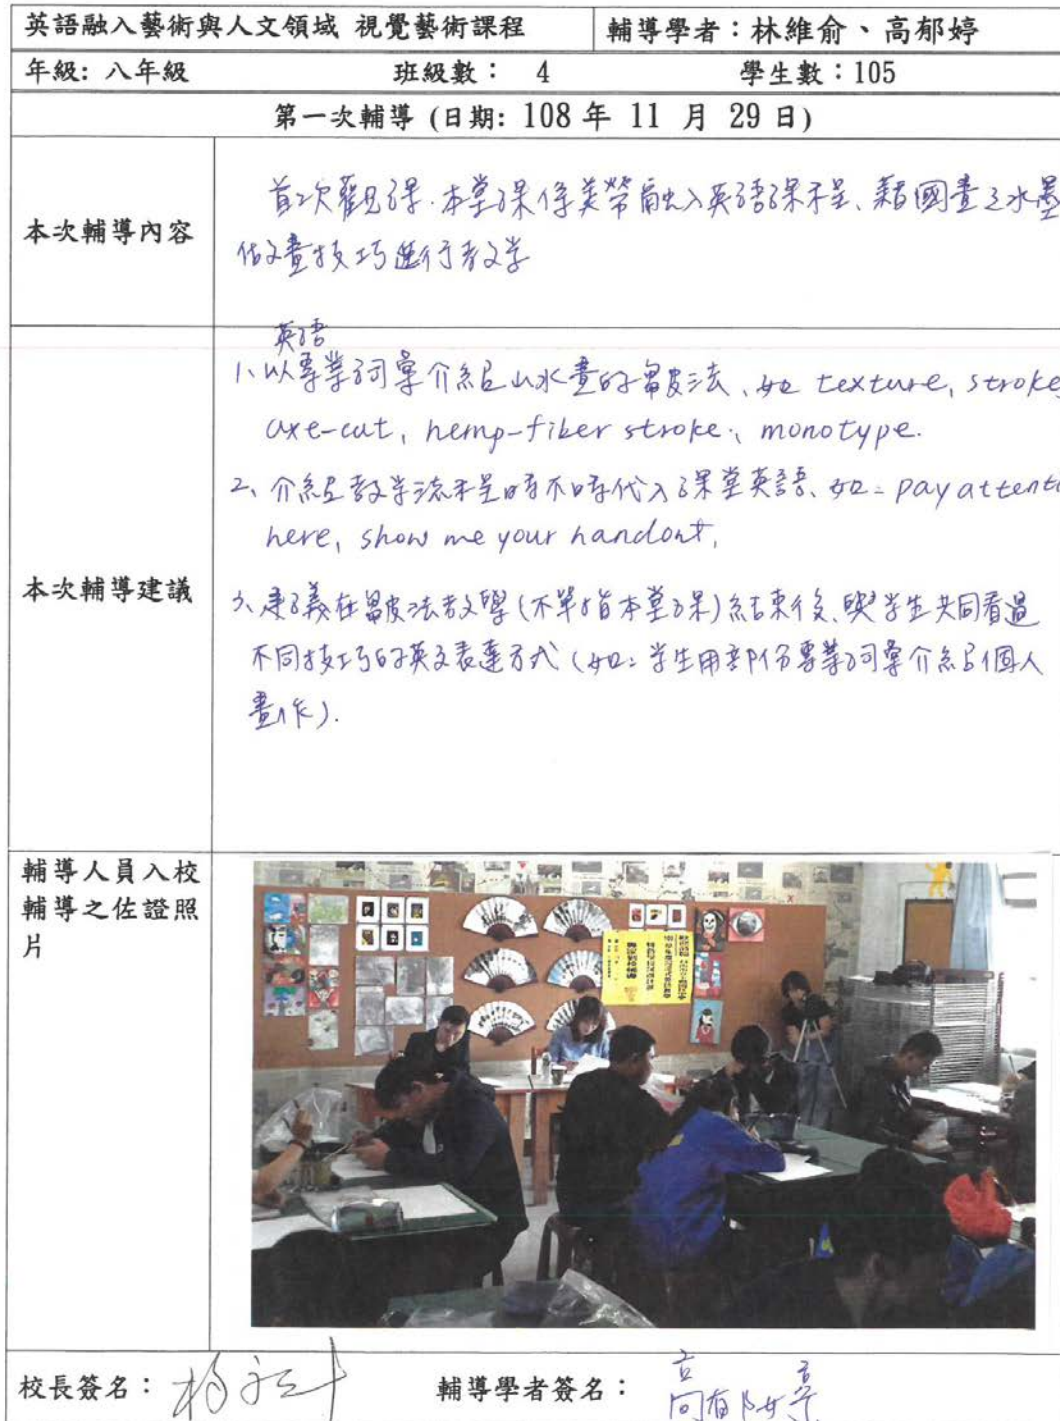 英語融入藝術與人文領域 視覺藝術課程
輔導學者：林維俞、高郁婷
年級: 八年級 班級數： 4 學生數：105
第一次輔導 (日期: 108 年 11 月 29 日)
本次輔導內容
首次觀課.本堂課係美勞融入英語課程、藉國畫之水墨
作畫技巧進行教學
本次輔導建議
英語
1、以專業詞彙介紹山水畫的皴法、如 texture, stroke,
axe-cut, hemp-fiber stroke., monotype.
2、介紹教學流程時不時代入課堂英語、如: pay attenti
here, show me your handout,
3、建議在皴法教學(不單指本堂課)結束後、與學生共同看過
不同技巧的英文表達方式 (如: 學生用部份專業詞彙介紹個人
畫作).
輔導人員入校
輔導之佐證照
片
校長簽名：
輔導學者簽名： 高郁婷